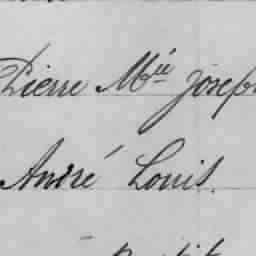 Pierre Mie Joseph
André Louis.